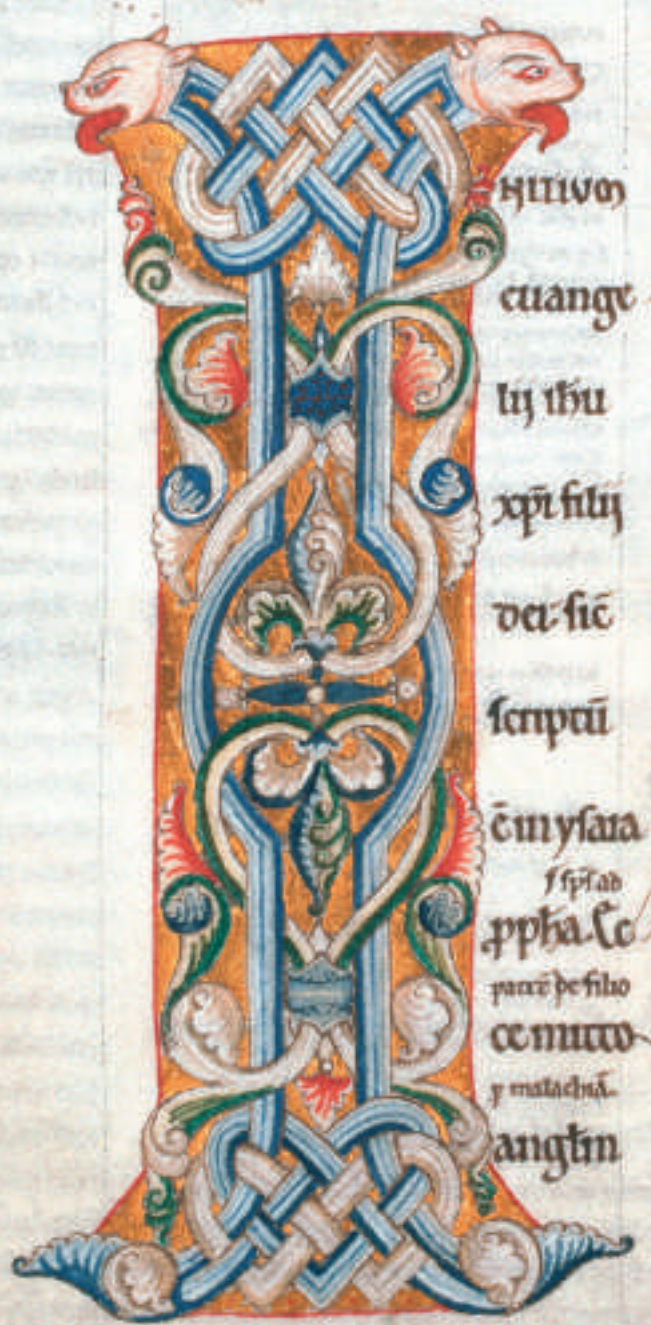 NITIUM
euange
lij ih̄u
xp̄i filij
dei. sic̄
scriptū
ē in ysaia
ſ sp̄s ad
ꝓpha. Ec
patrē de filio
ce mitto
ꝑ malachiā.
angl̄m